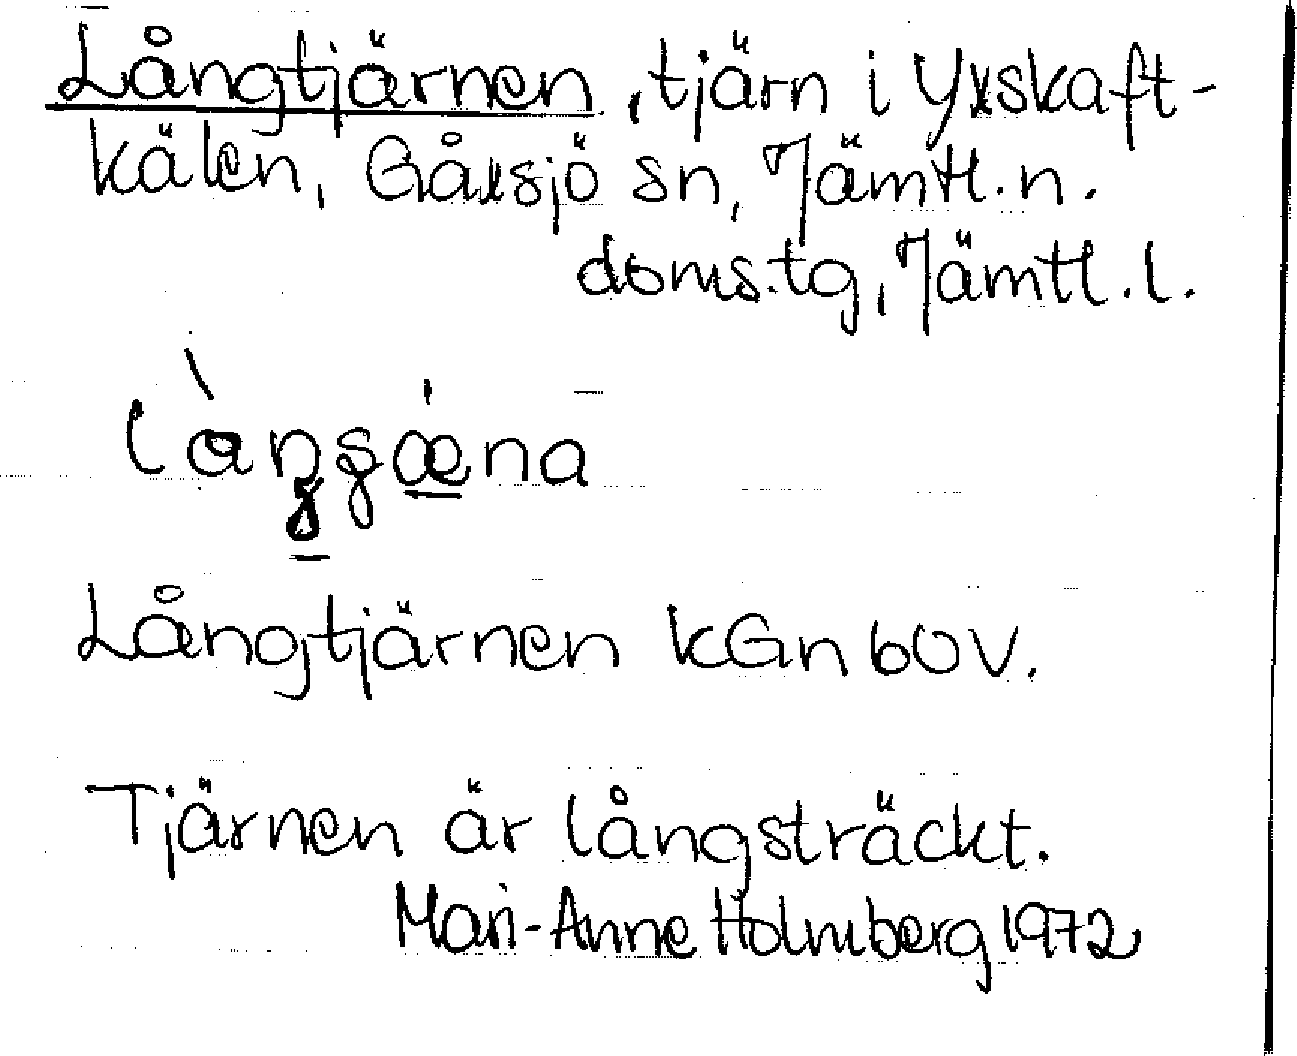 Långtjärnen, tjärn i Yxskaft-
kälen, Gåxsjö sn, Jämtl. n.
doms.tg, Jämtl. l.
Långtjärnen kGn 60 V.
Tjärnen är långsträckt.
Mari-Anne Holmberg 1972